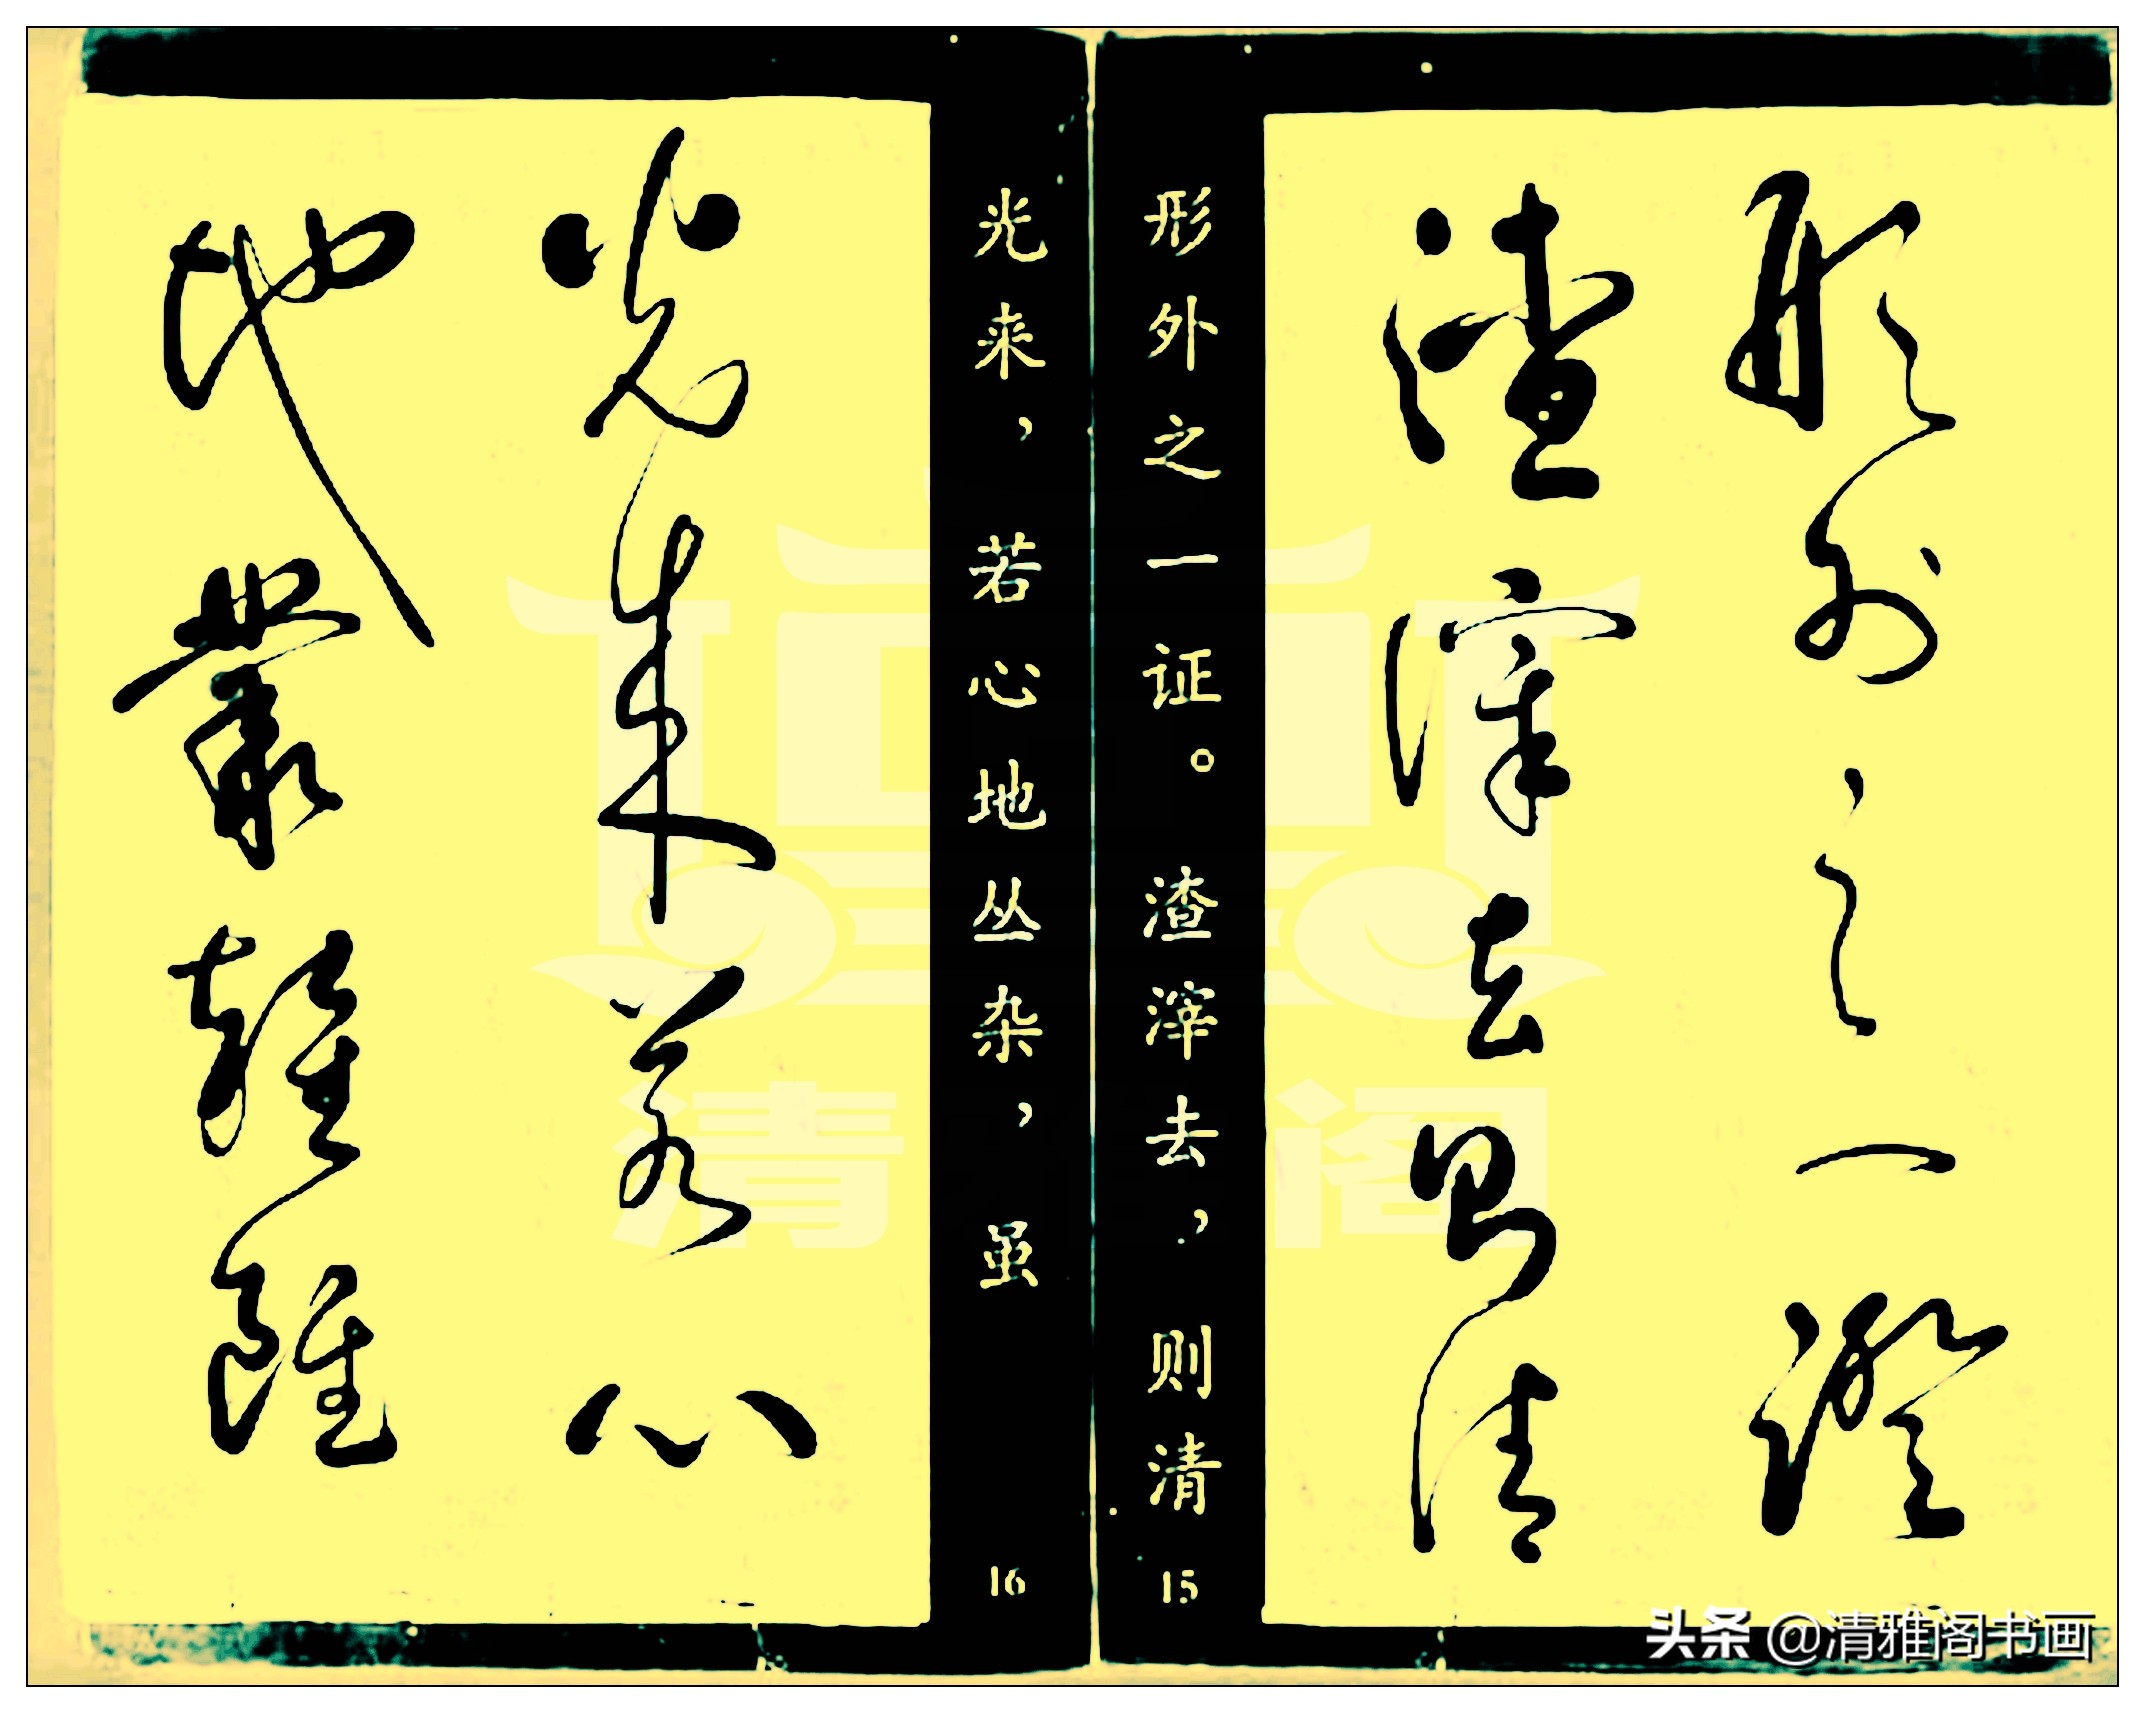 形外之一證
渣滓去則清
形外之一证。渣滓去，则清
15
光来，若心地丛杂，虽
16
光来若心
地叢雜雖
清 阁
头条 @清雅阁书画